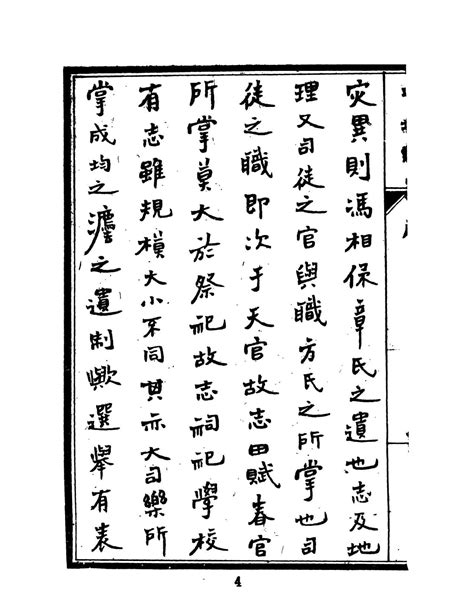 灾異則馮相保章氏之遺也志及地
理又司徒之官與職方氏之所掌也司
徒之職即次于天官故志田賦春官
所掌莫大於祭祀故志祠祀學校
有志雖規模大小不同其亦大司樂所
掌成均之灋之遺制歟選舉有表
4